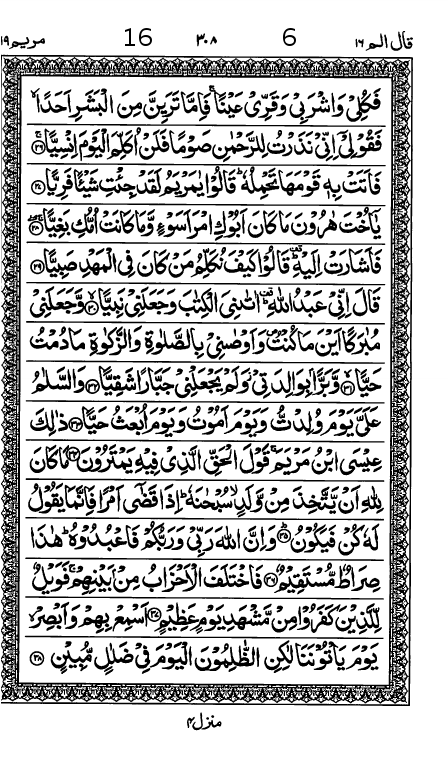 قال الم ١٦ 6 ٣٠٨ 16 مريم ١٩
فَكُلِىْ وَاشْرَبِىْ وَقَرِّىْ عَيْنًا ۚ فَاِمَّا تَرَيِنَّ مِنَ الْبَشَرِ اَحَدًا ۙ
فَقُوْلِىْٓ اِنِّىْ نَذَرْتُ لِلرَّحْمٰنِ صَوْمًا فَلَنْ اُكَلِّمَ الْيَوْمَ اِنْسِيًّا ۚ ﴿٢٦﴾
فَاَتَتْ بِهٖ قَوْمَهَا تَحْمِلُهٗ ؕ قَالُوْا يٰمَرْيَمُ لَقَدْ جِئْتِ شَيْـًٔا فَرِيًّا ﴿٢٧﴾
يٰۤاُخْتَ هٰرُوْنَ مَا كَانَ اَبُوْكِ امْرَاَ سَوْءٍ وَّمَا كَانَتْ اُمُّكِ بَغِيًّا ﴿٢٨﴾
فَاَشَارَتْ اِلَيْهِ ؕ قَالُوْا كَيْفَ نُكَلِّمُ مَنْ كَانَ فِى الْمَهْدِ صَبِيًّا ﴿٢٩﴾
قَالَ اِنِّىْ عَبْدُ اللّٰهِ ؕ اٰتٰىنِىَ الْكِتٰبَ وَجَعَلَنِىْ نَبِيًّا ۙ ﴿٣٠﴾ وَّجَعَلَنِىْ
مُبٰرَكًا اَيْنَ مَا كُنْتُ ۪ وَاَوْصٰنِىْ بِالصَّلٰوةِ وَالزَّكٰوةِ مَا دُمْتُ
حَيًّا ۖ ﴿٣١﴾ وَّبَرًّۢا بِوَالِدَتِىْ وَلَمْ يَجْعَلْنِىْ جَبَّارًا شَقِيًّا ﴿٣٢﴾ وَالسَّلٰمُ
عَلَىَّ يَوْمَ وُلِدْتُّ وَيَوْمَ اَمُوْتُ وَيَوْمَ اُبْعَثُ حَيًّا ﴿٣٣﴾ ذٰلِكَ
عِيْسَى ابْنُ مَرْيَمَ ۚ قَوْلَ الْحَقِّ الَّذِىْ فِيْهِ يَمْتَرُوْنَ ﴿٣٤﴾ مَا كَانَ
لِلّٰهِ اَنْ يَّتَّخِذَ مِنْ وَّلَدٍ ۙ سُبْحٰنَهٗ ؕ اِذَا قَضٰٓى اَمْرًا فَاِنَّمَا يَقُوْلُ
لَهٗ كُنْ فَيَكُوْنُ ؕ ﴿٣٥﴾ وَاِنَّ اللّٰهَ رَبِّىْ وَرَبُّكُمْ فَاعْبُدُوْهُ ؕ هٰذَا
صِرَاطٌ مُّسْتَقِيْمٌ ﴿٣٦﴾ فَاخْتَلَفَ الْاَحْزَابُ مِنْۢ بَيْنِهِمْ ۚ فَوَيْلٌ
لِّلَّذِيْنَ كَفَرُوْا مِنْ مَّشْهَدِ يَوْمٍ عَظِيْمٍ ﴿٣٧﴾ اَسْمِعْ بِهِمْ وَاَبْصِرْ ۙ
يَوْمَ يَاْتُوْنَنَا لٰكِنِ الظّٰلِمُوْنَ الْيَوْمَ فِىْ ضَلٰلٍ مُّبِيْنٍ ﴿٣٨﴾
منزل ٤